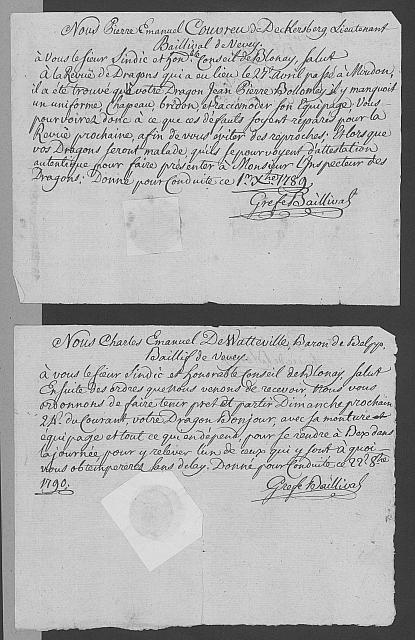 Nous Pierre Emanuel Couvreu de Deckersberg Lieutenant
Baillival de Vevey.
à Vous le sieur Sindic et honble Conseil de Blonay, salut
à la Revüe de Dragons qui a eu lieu le 27e Avril passé à Moudon,
il a été trouvé que votre Dragon Jean Pierre Bollomey il y manquoit
un uniforme, Chapeau, bridon, et racomoder son Equipage. Vous
pourvoirez donc à ce que ces défauts soyent réparés pour la
Revüe prochaine, afin de vous éviter des reproches; & lorsque
vos Dragons seront malade, qu'ils se pourvoyent d'attestation
autentique pour faire présenter à Monsieur l'Inspecteur des
Dragons. Donné pour Conduite ce 1r Xbre 1789.
Grefe Baillival
Nous Charles Emanuel De Watteville, Baron de Belpp,
Baillif de Vevey.
à vous le sieur Sindic et honorable Conseil de Blonay salut
Ensuite des ordres que nous venons de recevoir, nous vous
ordonnons de faire tenir pret et partir Dimanche prochain
24e du Courant, votre Dragon Bonjour, avec sa monture et
équipage et tout ce qui en dépend, pour se rendre à Bex dans
la journée pour y relever l'un de ceux qui y sont à quoi
vous obtempererés sans delay. Donné pour Conduite ce 22e 8bre
1790.
Grefe Baillival